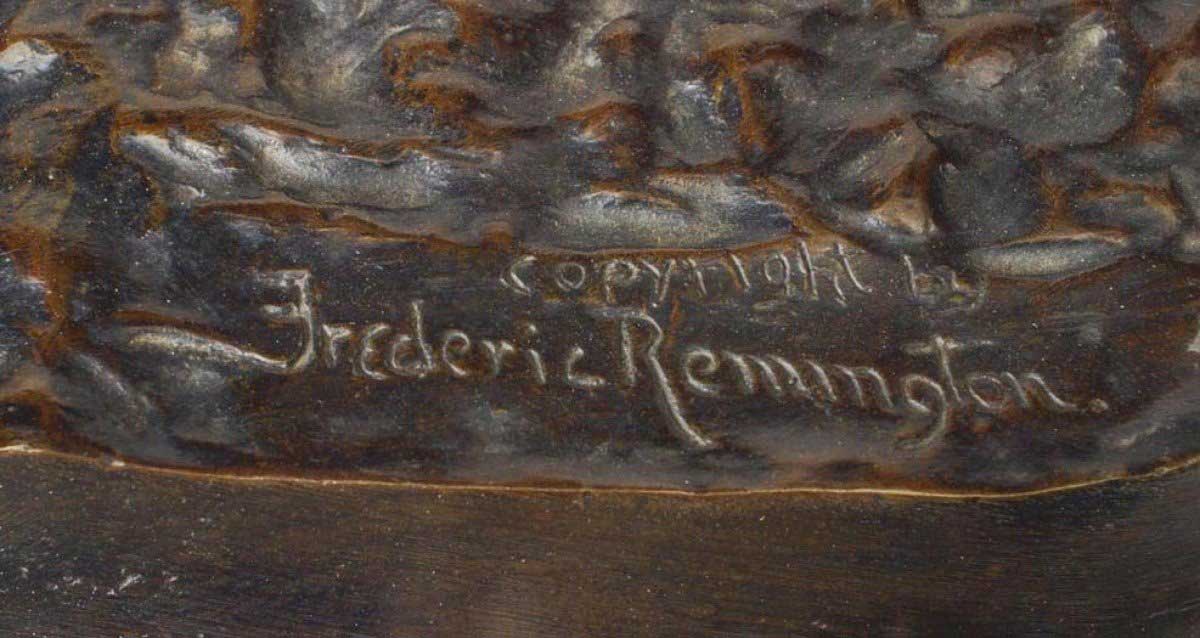 copyright by
Frederic Remington.